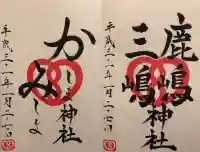 鹿嶋
三嶋
神社
平成三十一年一月二十七日
かしま
みしま
神社
平成三十一年一月二十七日